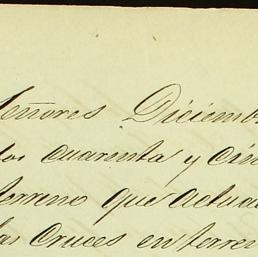 Señores Diciemb
los cuarenta y cin
terreno que actua
las Cruces en terre